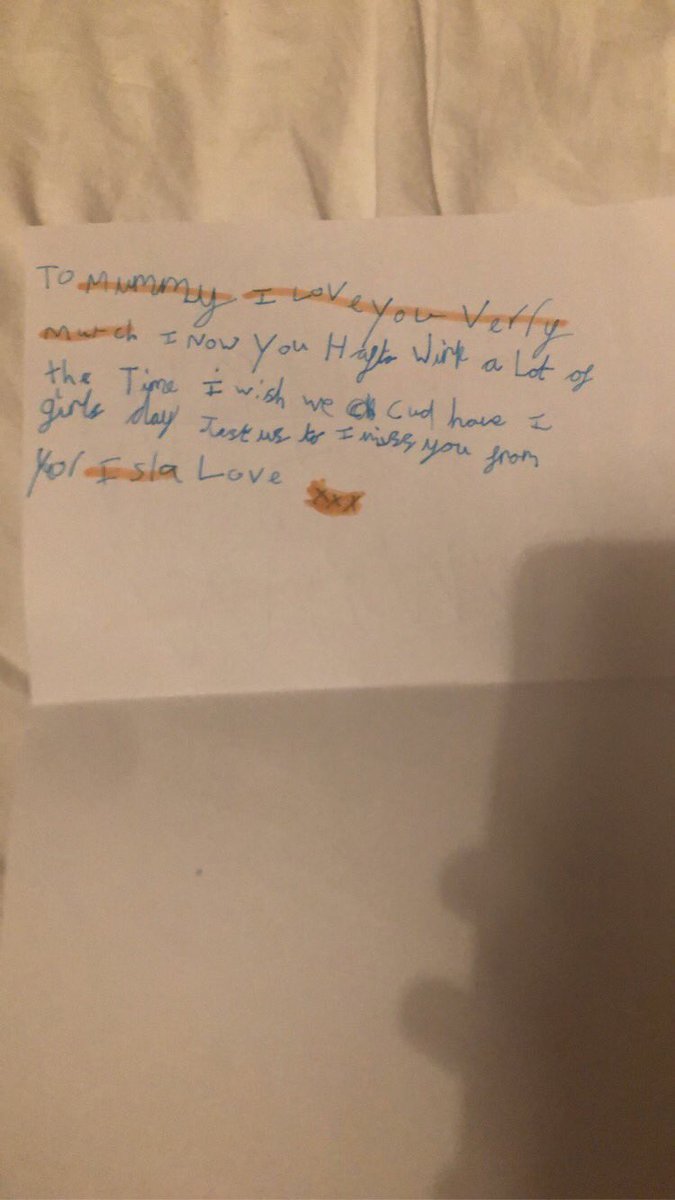 To Mummy I Love you Verry
Mutch I Now You Hafto Wirk a Lot of
the Time i wish we Cud have I
girls day Jest us to I miss you from
Yor Isla Love
xxx